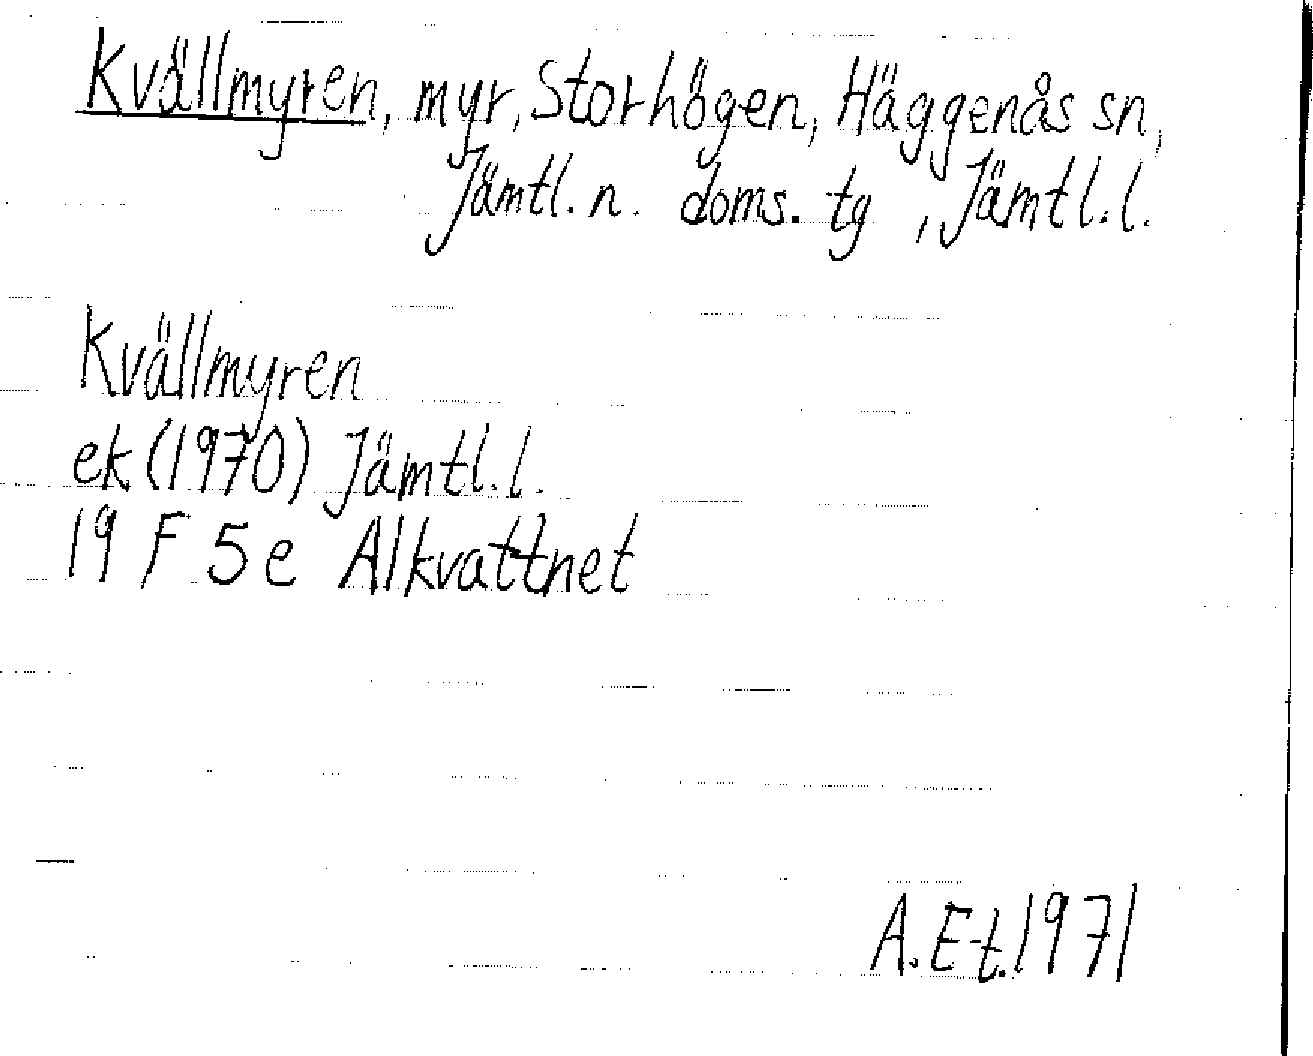 Kvällmyren, myr, Storhögen, Häggenås sn,
Jämtl. n. doms. tg , Jämtl. l.
Kvällmyren
ek (1970) Jämtl. l.
19 F 5 e Alkvattnet
A. E-t. 1971